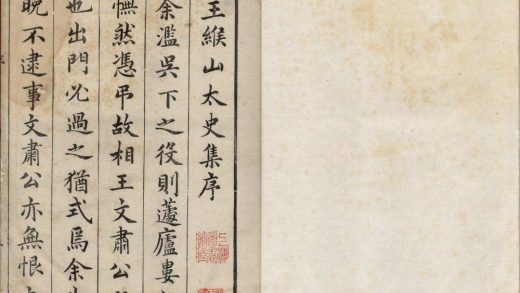 王緱山太史集序
余濫吳下之役則蘧廬婁
憮然憑弔故相王文肅公
也出門必過之猶式焉余
晚不逮事文肅公亦無恨